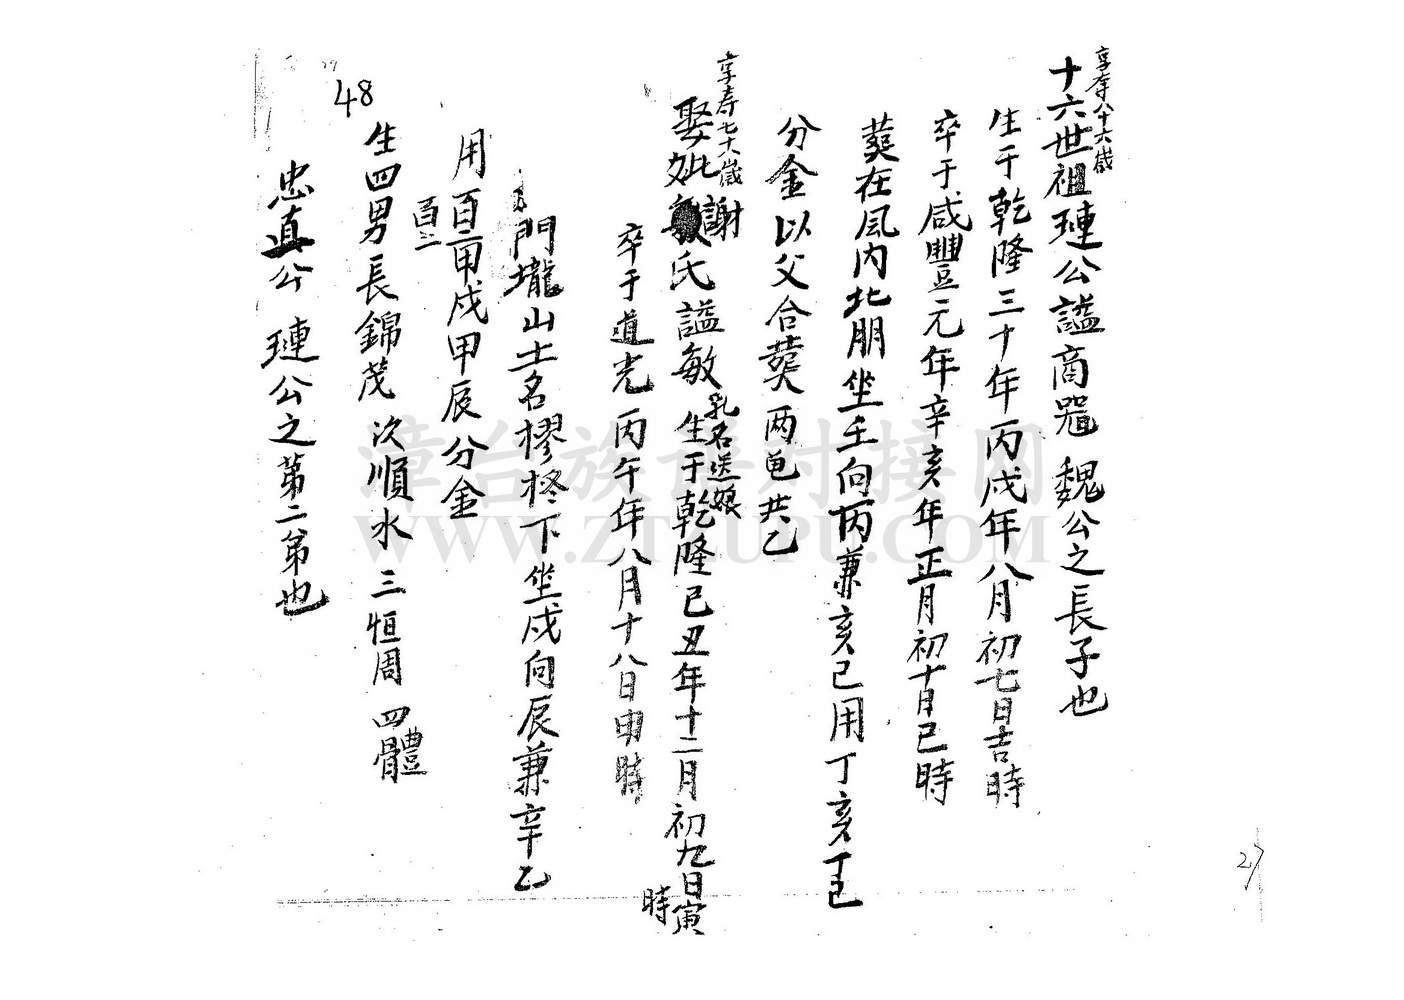 享壽八十六歲
十六世祖璉公謚商 魏公之長子也
生于乾隆三十年丙戌年八月初七日吉時
卒于咸豐元年辛亥年正月初十月巳時
葬在凬内北朋坐壬向丙兼亥巳用丁亥丁巳
分金以父合葬 两 共乙
享寿七十八歲
娶妣謝氏謚敏 乳名送娘 生于乾隆己丑年十二月初九日寅時
卒于道光丙午年八月十八日申時
門壠山土名樛柊下坐戌向辰兼辛乙
用百二甲戌甲辰分金
百二
48
生四男長錦茂 次順水 三恒周 四體
忠真公 璉公之第二弟也
27
漳台族谱对接网
WWW.ZTZUPU.COM